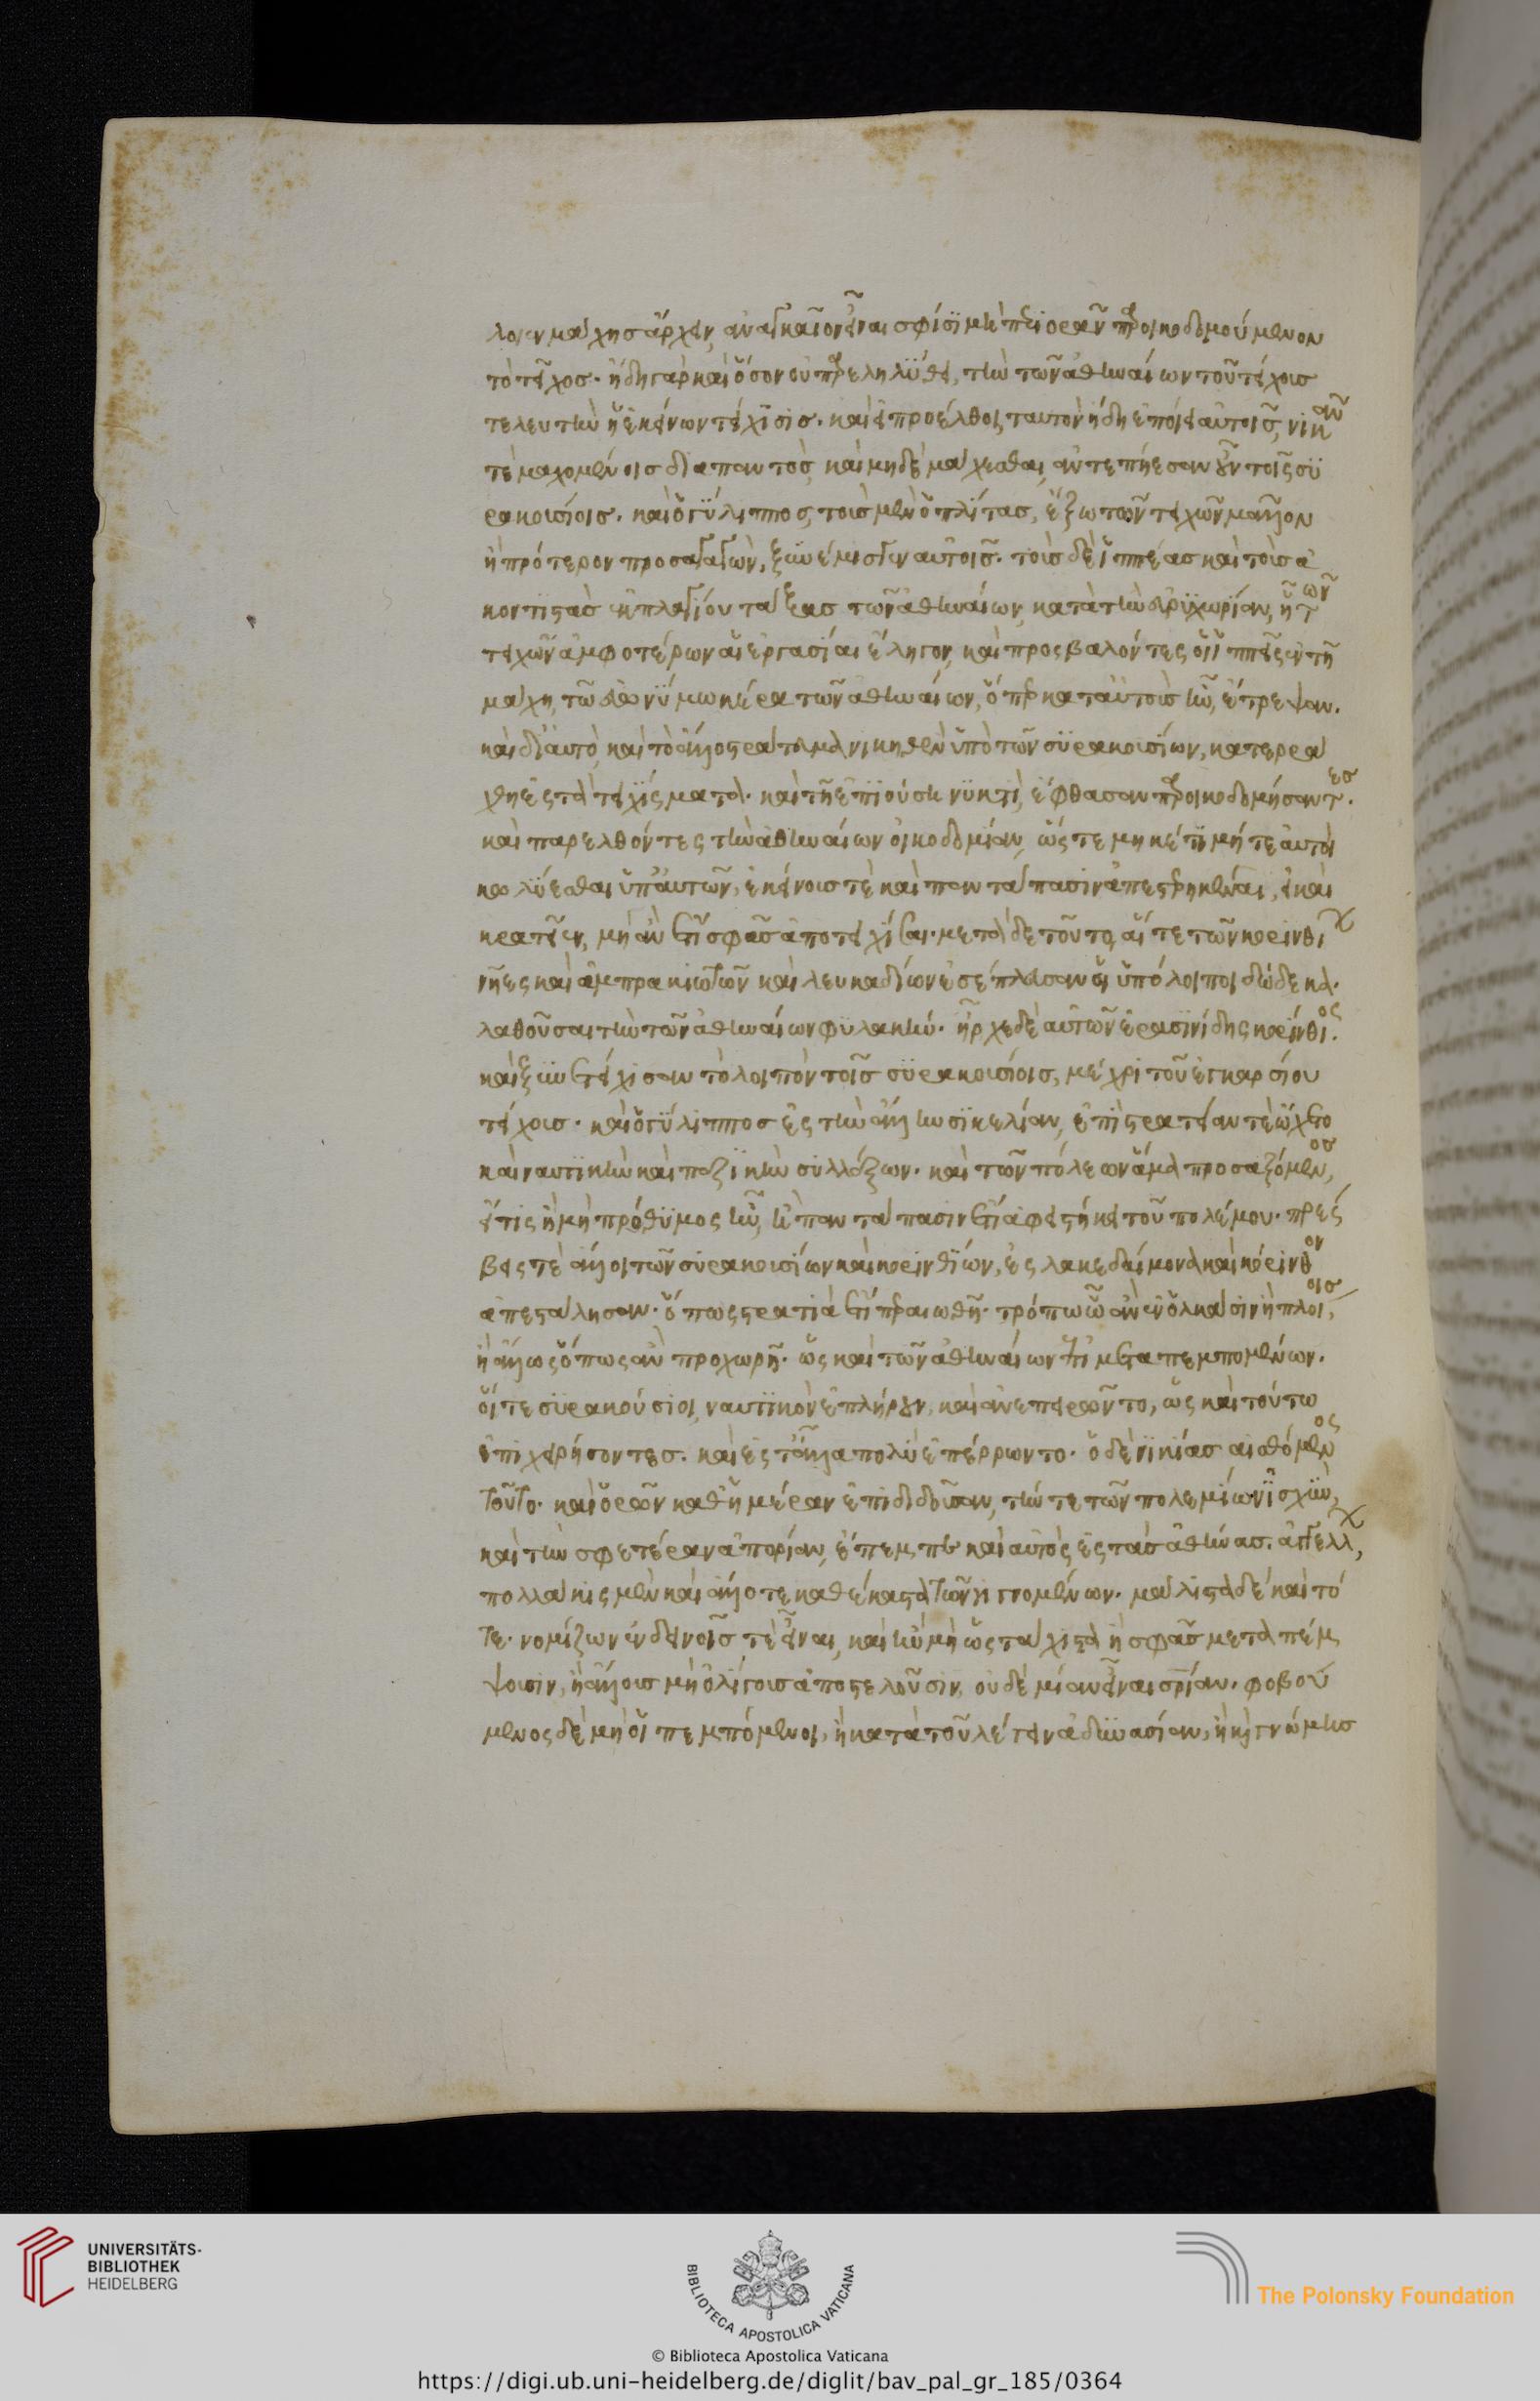 λοιεν μάχης ἄρχειν, ἀναγκαῖον εἶναι σφίσι μὴ περιορᾶν παροικοδομούμενον
τὸ τεῖχος· ἤδη γὰρ καὶ ὅσον οὐ παρεληλύθει, τὴν τῶν ἀθηναίων τοῦ τείχους
τελευτὴν ἡ ἐκείνων τείχισις. καὶ εἰ προέλθοι, ταυτὸν ἤδη ἐποίει αὐτοῖς, νικᾶν
τὲ μαχομένοις διαπαντὸς, καὶ μηδὲ μάχεσθαι, ἀντεπήεσαν οὖν τοῖς συ
ρακουσίοις. καὶ ὁ γύλιππος, τοὺς μὲν ὁπλίτας, ἔξω τῶν τειχῶν μᾶλλον
ἢ πρότερον προσαγαγὼν, ξυνέμισγεν αὐτοῖς. τοὺς δὲ ἱππέας καὶ τοὺς ἀ
κοντιστὰς ἐκ πλαγίου τάξας τῶν ἀθηναίων, κατὰ τὴν εὐρυχωρίαν, ᾗ τῶν
τειχῶν ἀμφοτέρων αἱ ἐργασίαι ἔληγον, καὶ προσβαλόντες οἱ ἱππεῖς ἐν τῇ
μάχῃ, τῶ εὐωνύμω κέρα τῶν ἀθηναίων, ὅπερ κατ' αὐτοὺς ἦν, ἔτρεψαν.
καὶ δι' αὐτὸ, καὶ τὸ ἄλλο στράτευμα νικηθὲν ὑπὸ τῶν συρακουσίων, κατερρά
χθη ἐς τὰ τειχίσματα. καὶ τῇ ἐπιούσῃ νυκτὶ, ἔφθασαν παροικοδομήσαντες.
καὶ παρελθόντες τὴν ἀθηναίων οἰκοδομίαν, ὥστε μηκέτι μήτε αὐτοὶ
κωλύεσθαι ὑπ' αὐτῶν, ἐκείνους τὲ καὶ παντάπασιν ἀπεστερηκέναι, εἰ καὶ
κρατοῖεν, μὴ ἂν ἔτι σφᾶς ἀποτειχίσαι. μετὰ δὲ τοῦτο, αἵ τε τῶν κορινθίων
νῆες καὶ ἀμπρακιωτῶν καὶ λευκαδίων ἐσέπλευσαν αἱ ὑπόλοιποι δώδεκα.
λαθοῦσαι τὴν τῶν ἀθηναίων φυλακήν. ἦρχε δὲ αὐτῶν ἐρασινίδης κορίνθιος.
καὶ ξυνετείχισαν τὸ λοιπὸν τοῖς συρακουσίοις, μέχρι τοῦ ἐγκαρσίου
τείχους. καὶ ὁ γύλιππος ἐς τὴν ἄλλην σικελίαν, ἐπὶ στρατείαν τὲ ᾤχετο
καὶ ναυτικὴν καὶ πεζικὴν συλλέξων. καὶ τῶν πόλεων ἅμα προσαξόμενος,
εἴ τις ἢ μὴ πρόθυμος ἦν, ἢ παντάπασιν ἔτι ἀφειστήκει τοῦ πολέμου. πρέσ
βεις τὲ ἄλλοι τῶν συρακουσίων καὶ κορινθίων, ἐς λακεδαίμονα καὶ κόρινθον
ἀπεστάλησαν. ὅπως στρατιὰ ἔτι περαιωθῇ. τρόπω ᾧ ἂν ἐν ὁλκάσιν ἢ πλοίοις,
ἢ ἄλλως ὅπως ἂν προχωρῇ. ὡς καὶ τῶν ἀθηναίων ἐπιμεταπεμπομένων.
οἵ τε συρακούσιοι, ναυτικὸν ἐπλήρουν, καὶ ἀνεπειρῶντο, ὡς καὶ τούτω
ἐπιχειρήσοντες. καὶ ἐς τἆλλα πολὺ ἐπέρρωντο. ὁ δὲ νικίας αἰσθόμενος
τοῦτο. καὶ ὁρῶν καθ' ἡμέραν ἐπιδιδοῦσαν, τήν τε τῶν πολεμίων ἰσχὺν,
καὶ τὴν σφετέραν ἀπορίαν, ἔπεμπε καὶ αὐτὸς ἐς τὰς ἀθήνας. ἀγγέλλων,
πολλάκις μὲν καὶ ἄλλοτε καθ' ἕκαστα τῶν γιγνομένων. μάλιστα δὲ καὶ τό
τε. νομίζων ἐν δεινοῖς τὲ εἶναι, καὶ ἢν μὴ ὡς τάχιστα ἢ σφᾶς μεταπέμ
ψουσιν, ἢ ἄλλους μὴ ὀλίγους ἀποστελοῦσιν, οὐδεμίαν εἶναι σρίαν. φοβού
μενος δὲ μὴ οἱ πεμπόμενοι, ἢ κατὰ τοῦ λέγειν ἀδυνασίαν, ἢ καὶ γνώμης
UNIVERSITÄTS-
BIBLIOTHEK
HEIDELBERG
BIBLIOTECA APOSTOLICA VATICANA
The Polonsky Foundation
© Biblioteca Apostolica Vaticana
https://digi.ub.uni-heidelberg.de/diglit/bav_pal_gr_185/0364